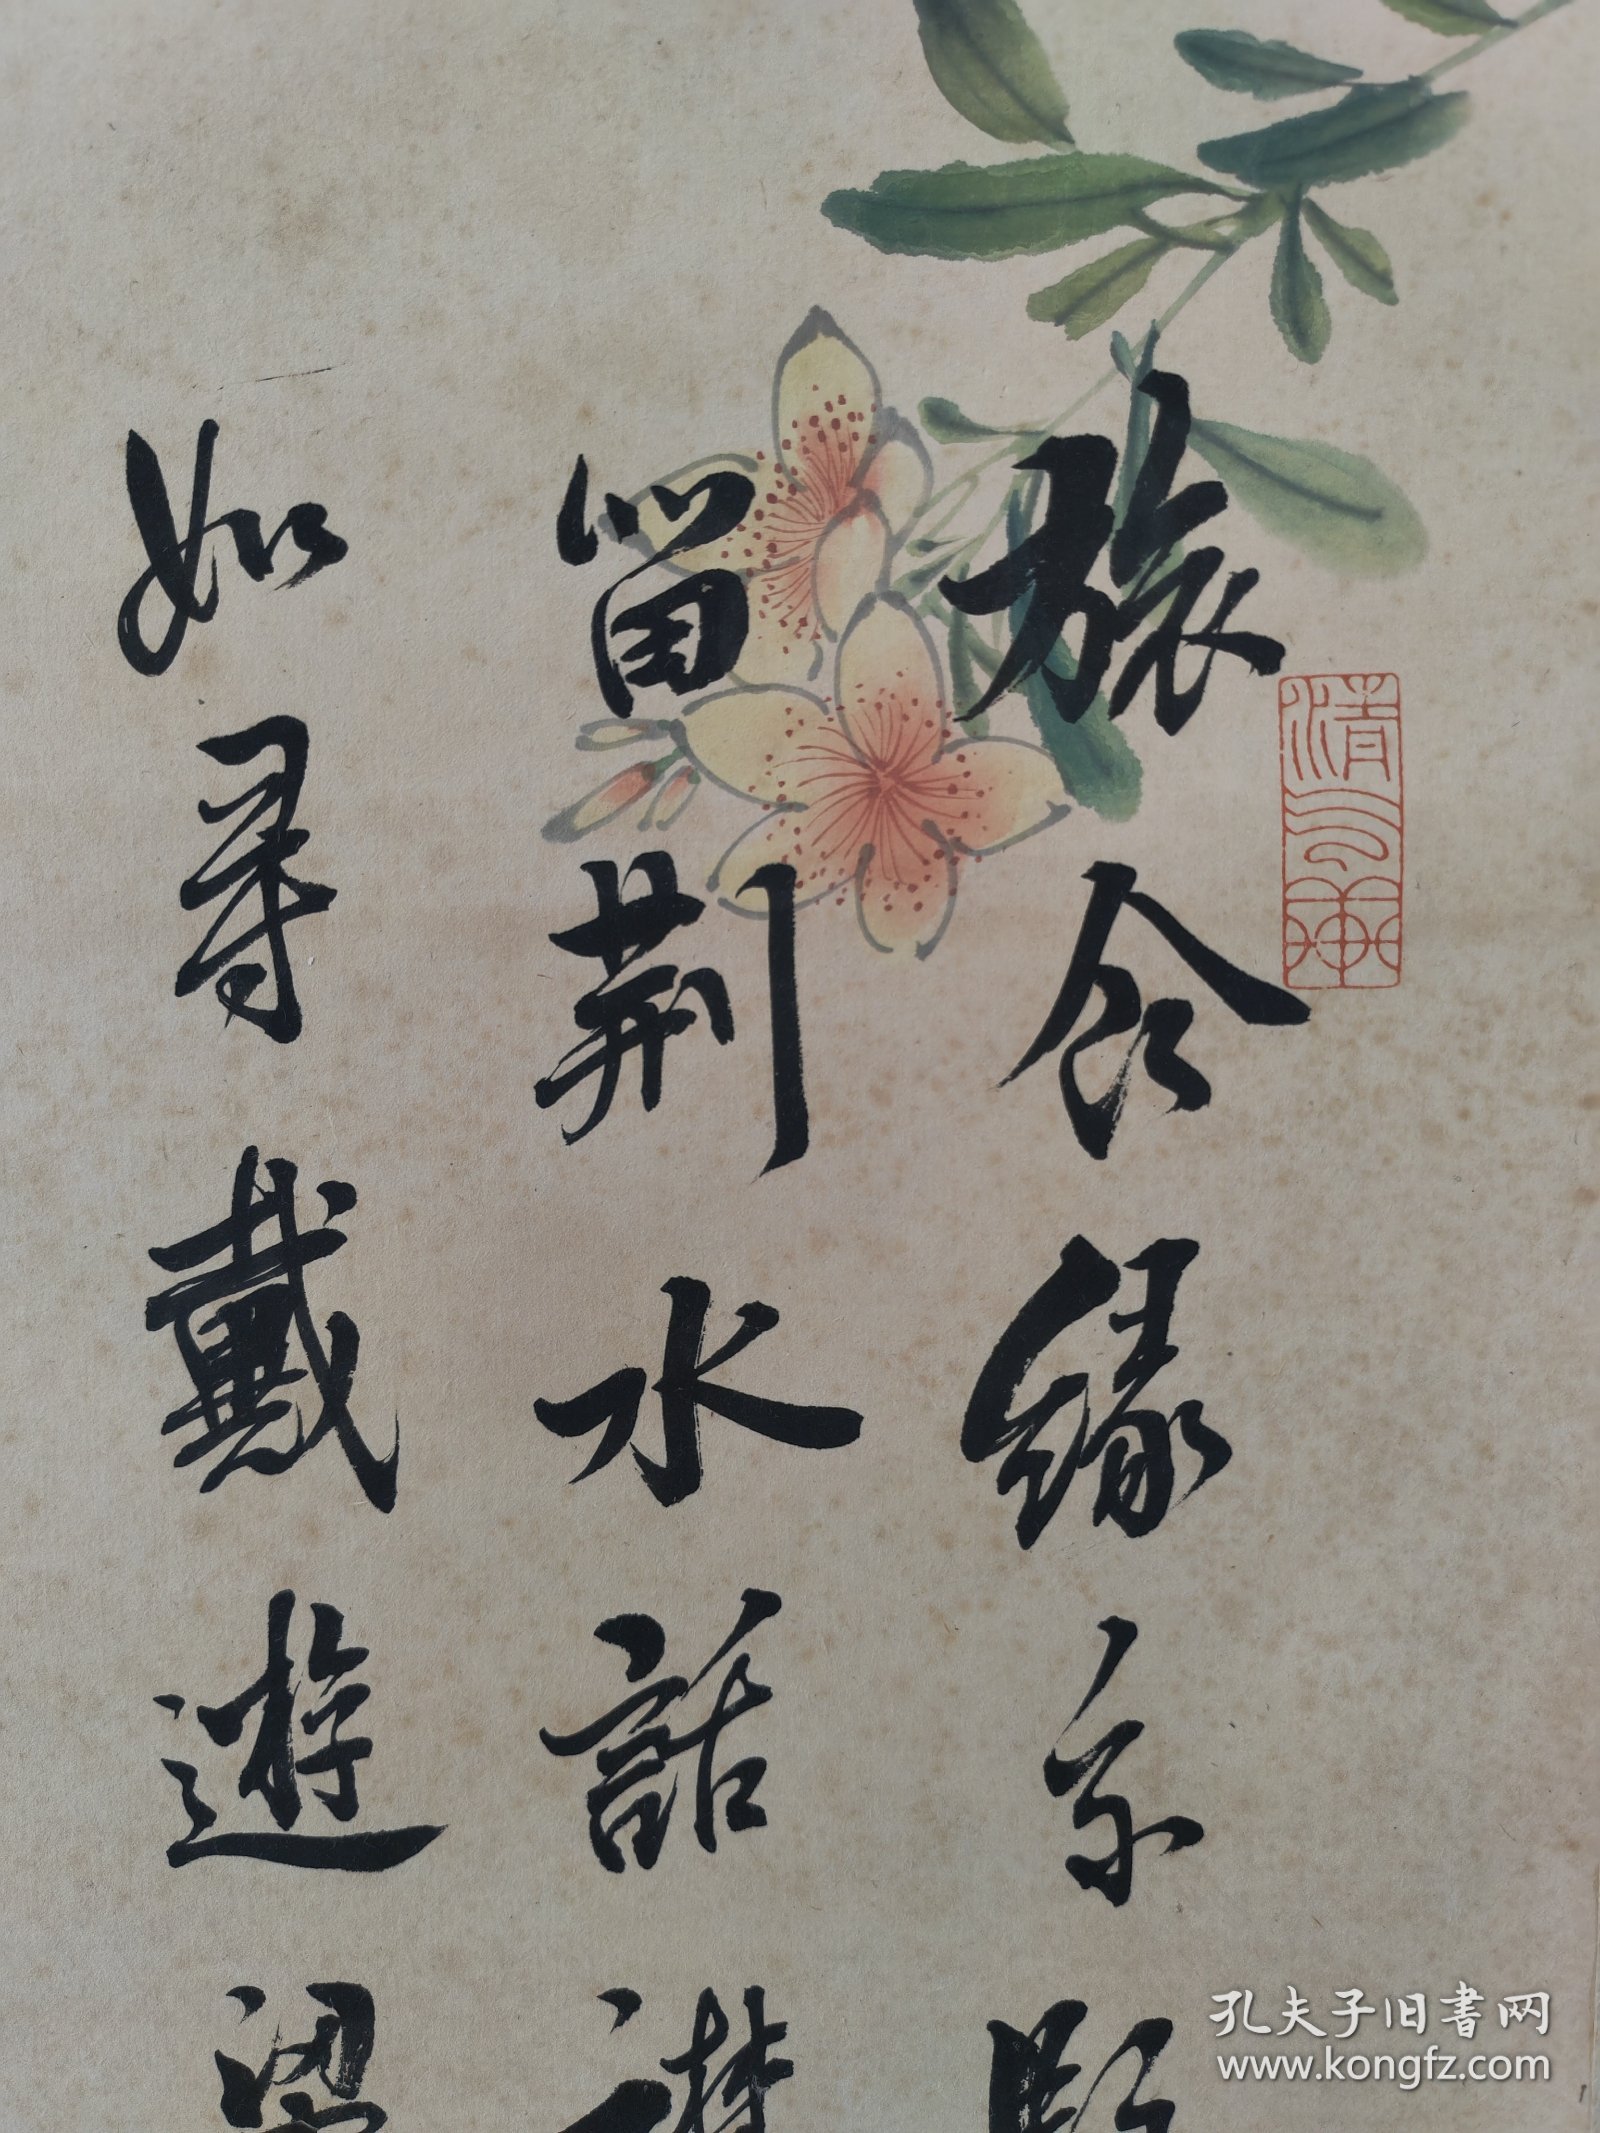 旅食緣交
留荊水話
如尋戴遊
孔夫子旧書网
www.kongfz.com